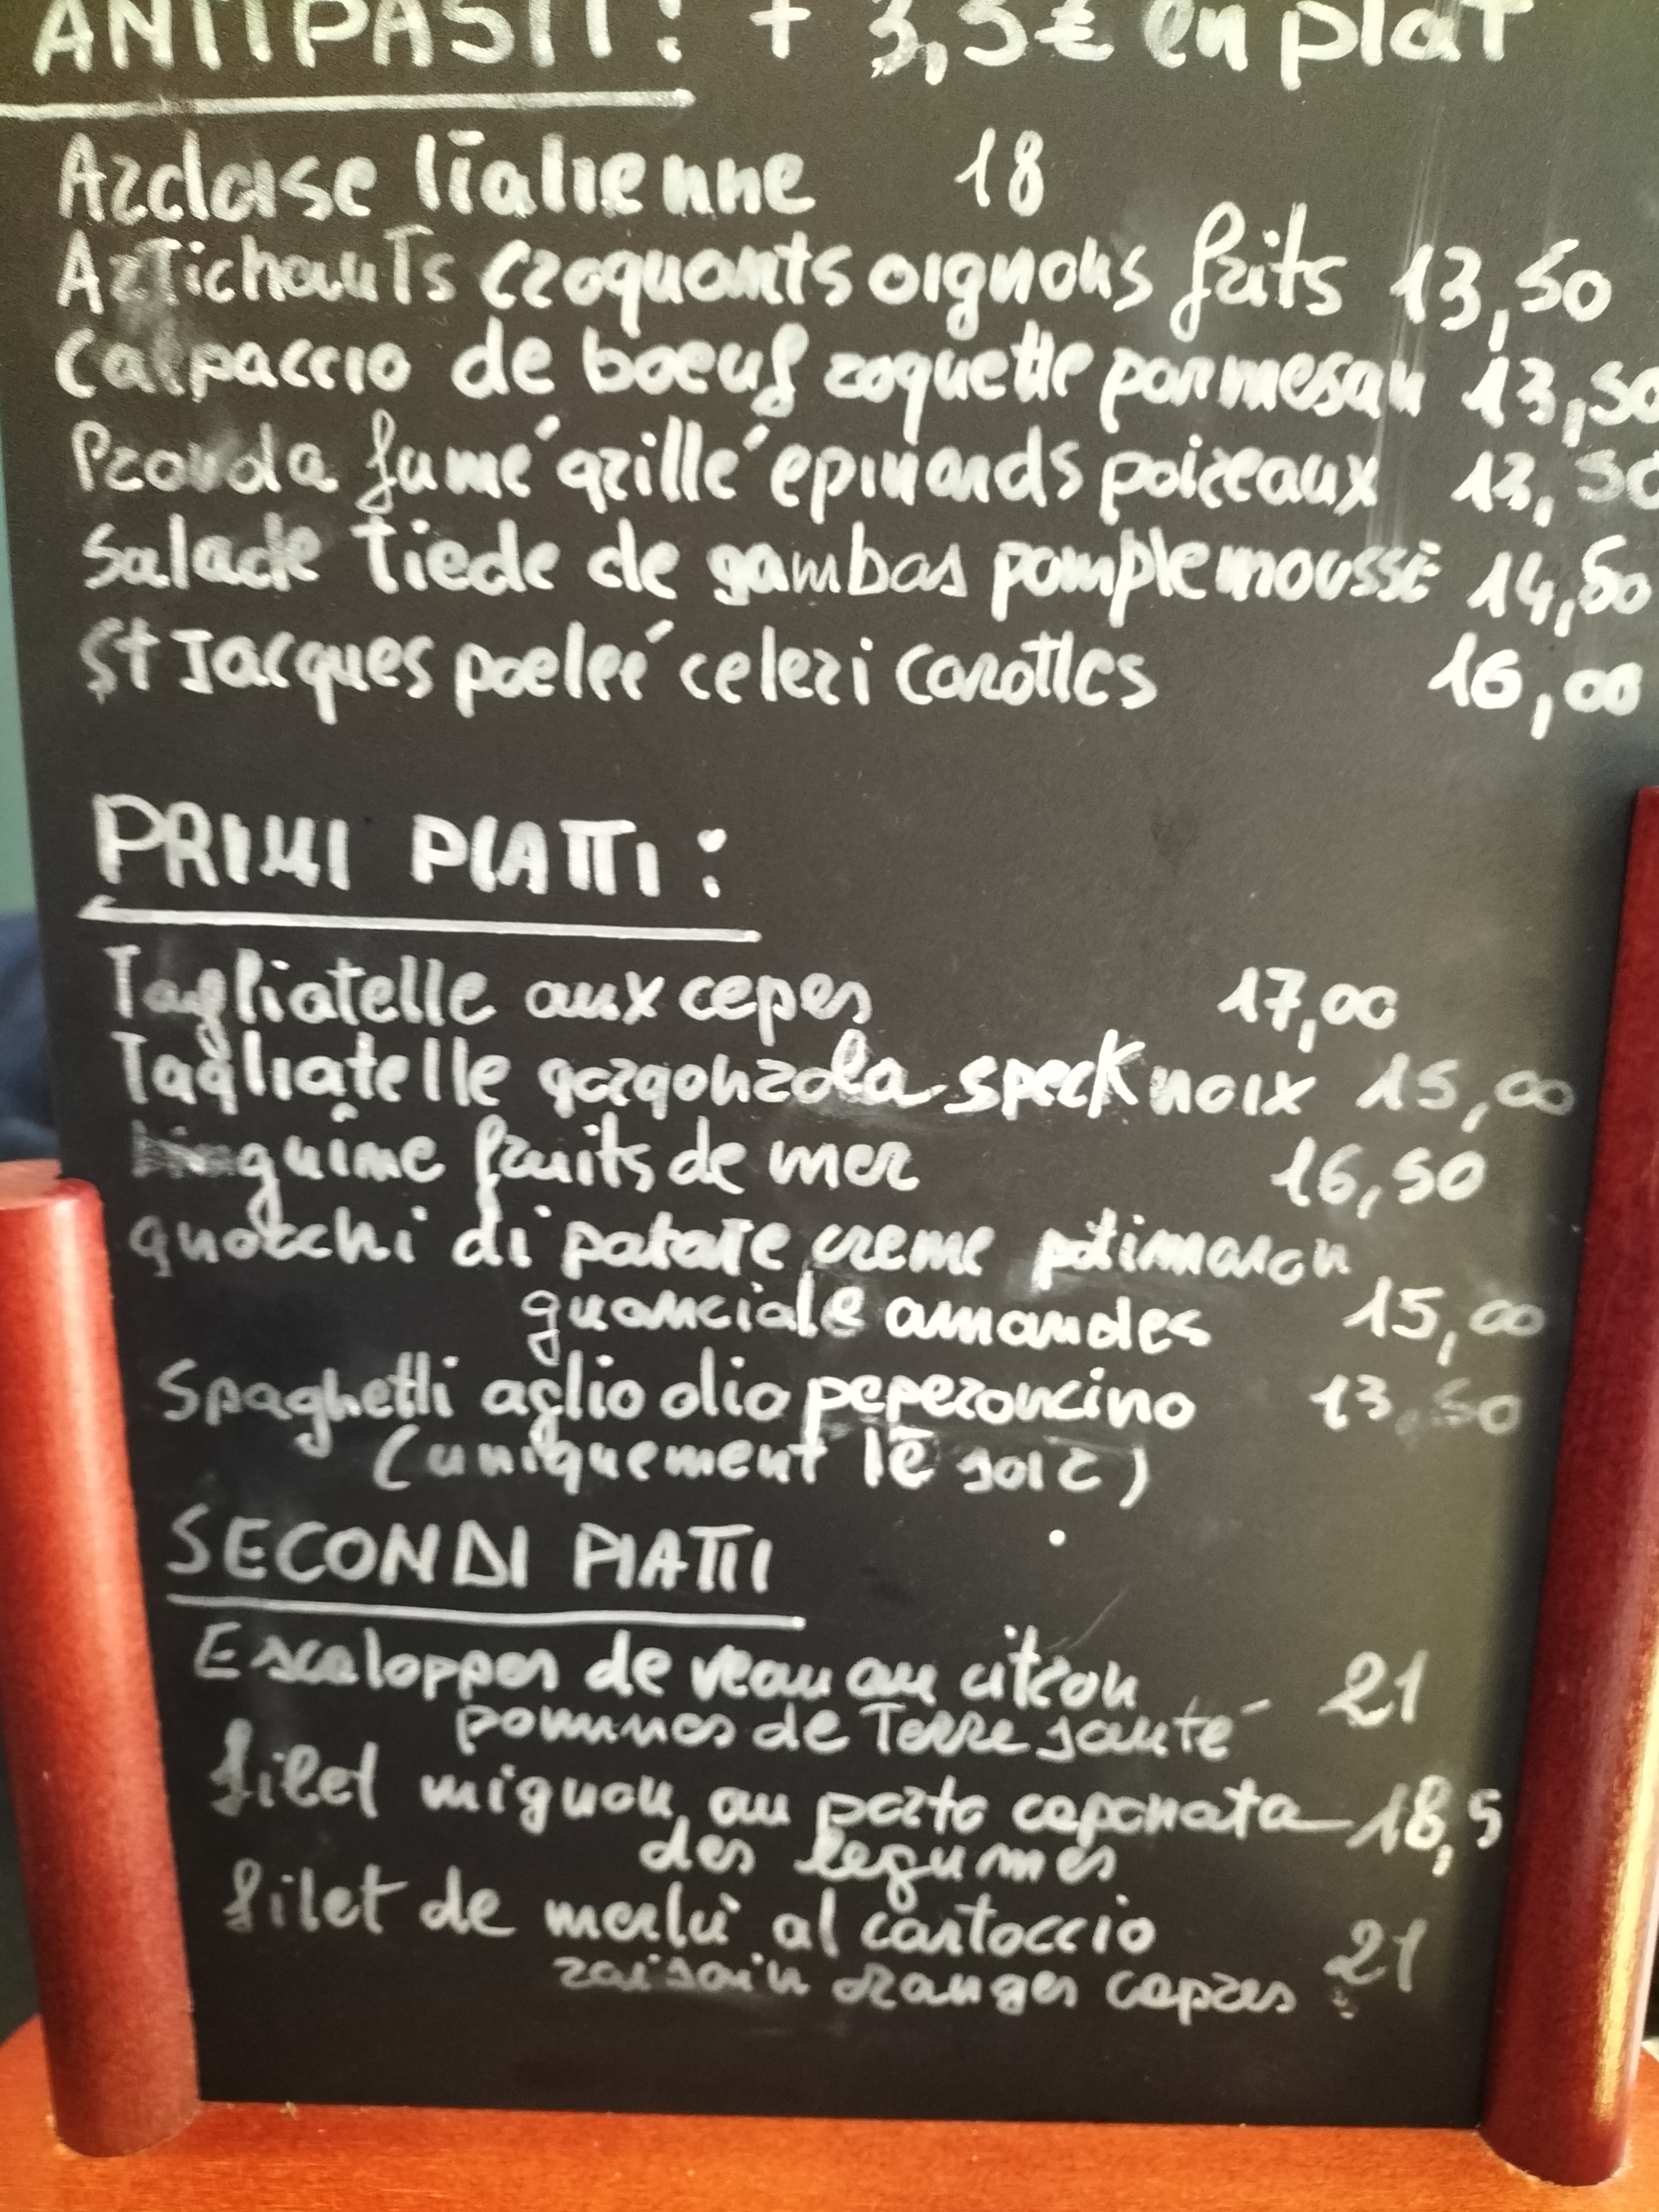 ANTIPASTI : + 3,5€ en plat
Ardoise Italienne 18
Artichauts croquants oignons frits 13,50
Calpaccio de boeuf roquette parmesan 13,50
Provola fumé grillé épinards poireaux 13,50
Salade tiede de gambas pomplemousse 14,50
St Jacques poeleé celeri carottes 16,00
PRIMI PIATTI :
Tagliatelle aux cepes 17,00
Tagliatelle gorgonzola speck noix 15,00
Linguine fruits de mer 16,50
gnocchi di patate creme potimaron
guanciale amandes 15,00
Spaghetti aglio olio peperoncino 13,50
(uniquement le soir)
SECONDI PIATTI
Escaloppes de veau au citron 21
pommes de Terre sauté
filet mignon au porto caponata 18,5
des legumes
filet de merlu al cartoccio 21
raisain oranges capres